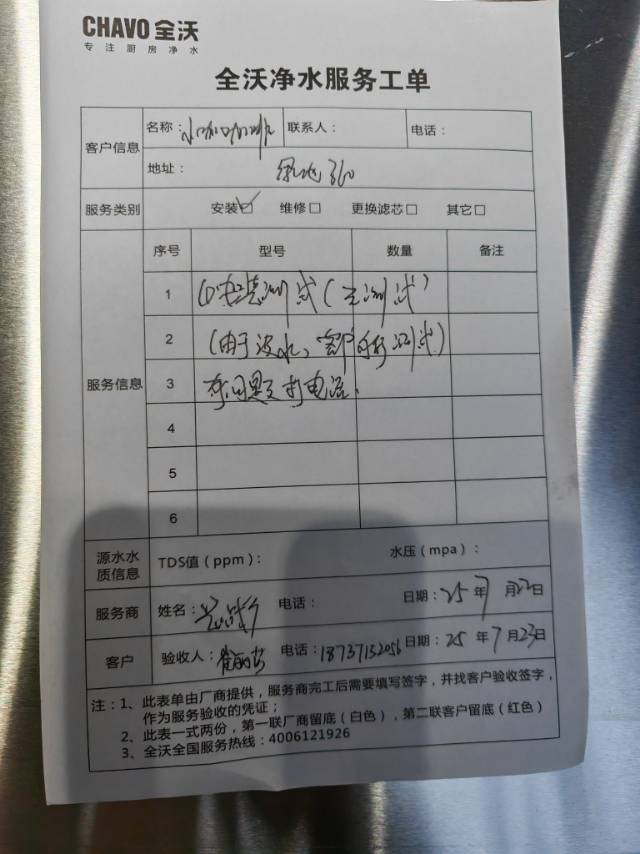 CHAVO 全沃
专注厨房净水
全沃净水服务工单
客户信息 名称： 小咖咖啡 联系人： 电话：
地址： 绿地360
服务类别 安装☑ 维修□ 更换滤芯□ 其它□
服务信息
序号 型号 数量 备注
1 测试（ 测试）
2 （由于没水， 测试）
3 有问题打电话.
4
5
6
源水水质信息 TDS值（ppm）： 水压（mpa）：
服务商 姓名： 电话： 日期：25年7月22日
客户 验收人：崔丽 电话：18737132056 日期：25年7月23日
注：1、此表单由厂商提供，服务商完工后需要填写签字，并找客户验收签字，
作为服务验收的凭证；
2、此表一式两份，第一联厂商留底（白色），第二联客户留底（红色）
3、全沃全国服务热线：4006121926